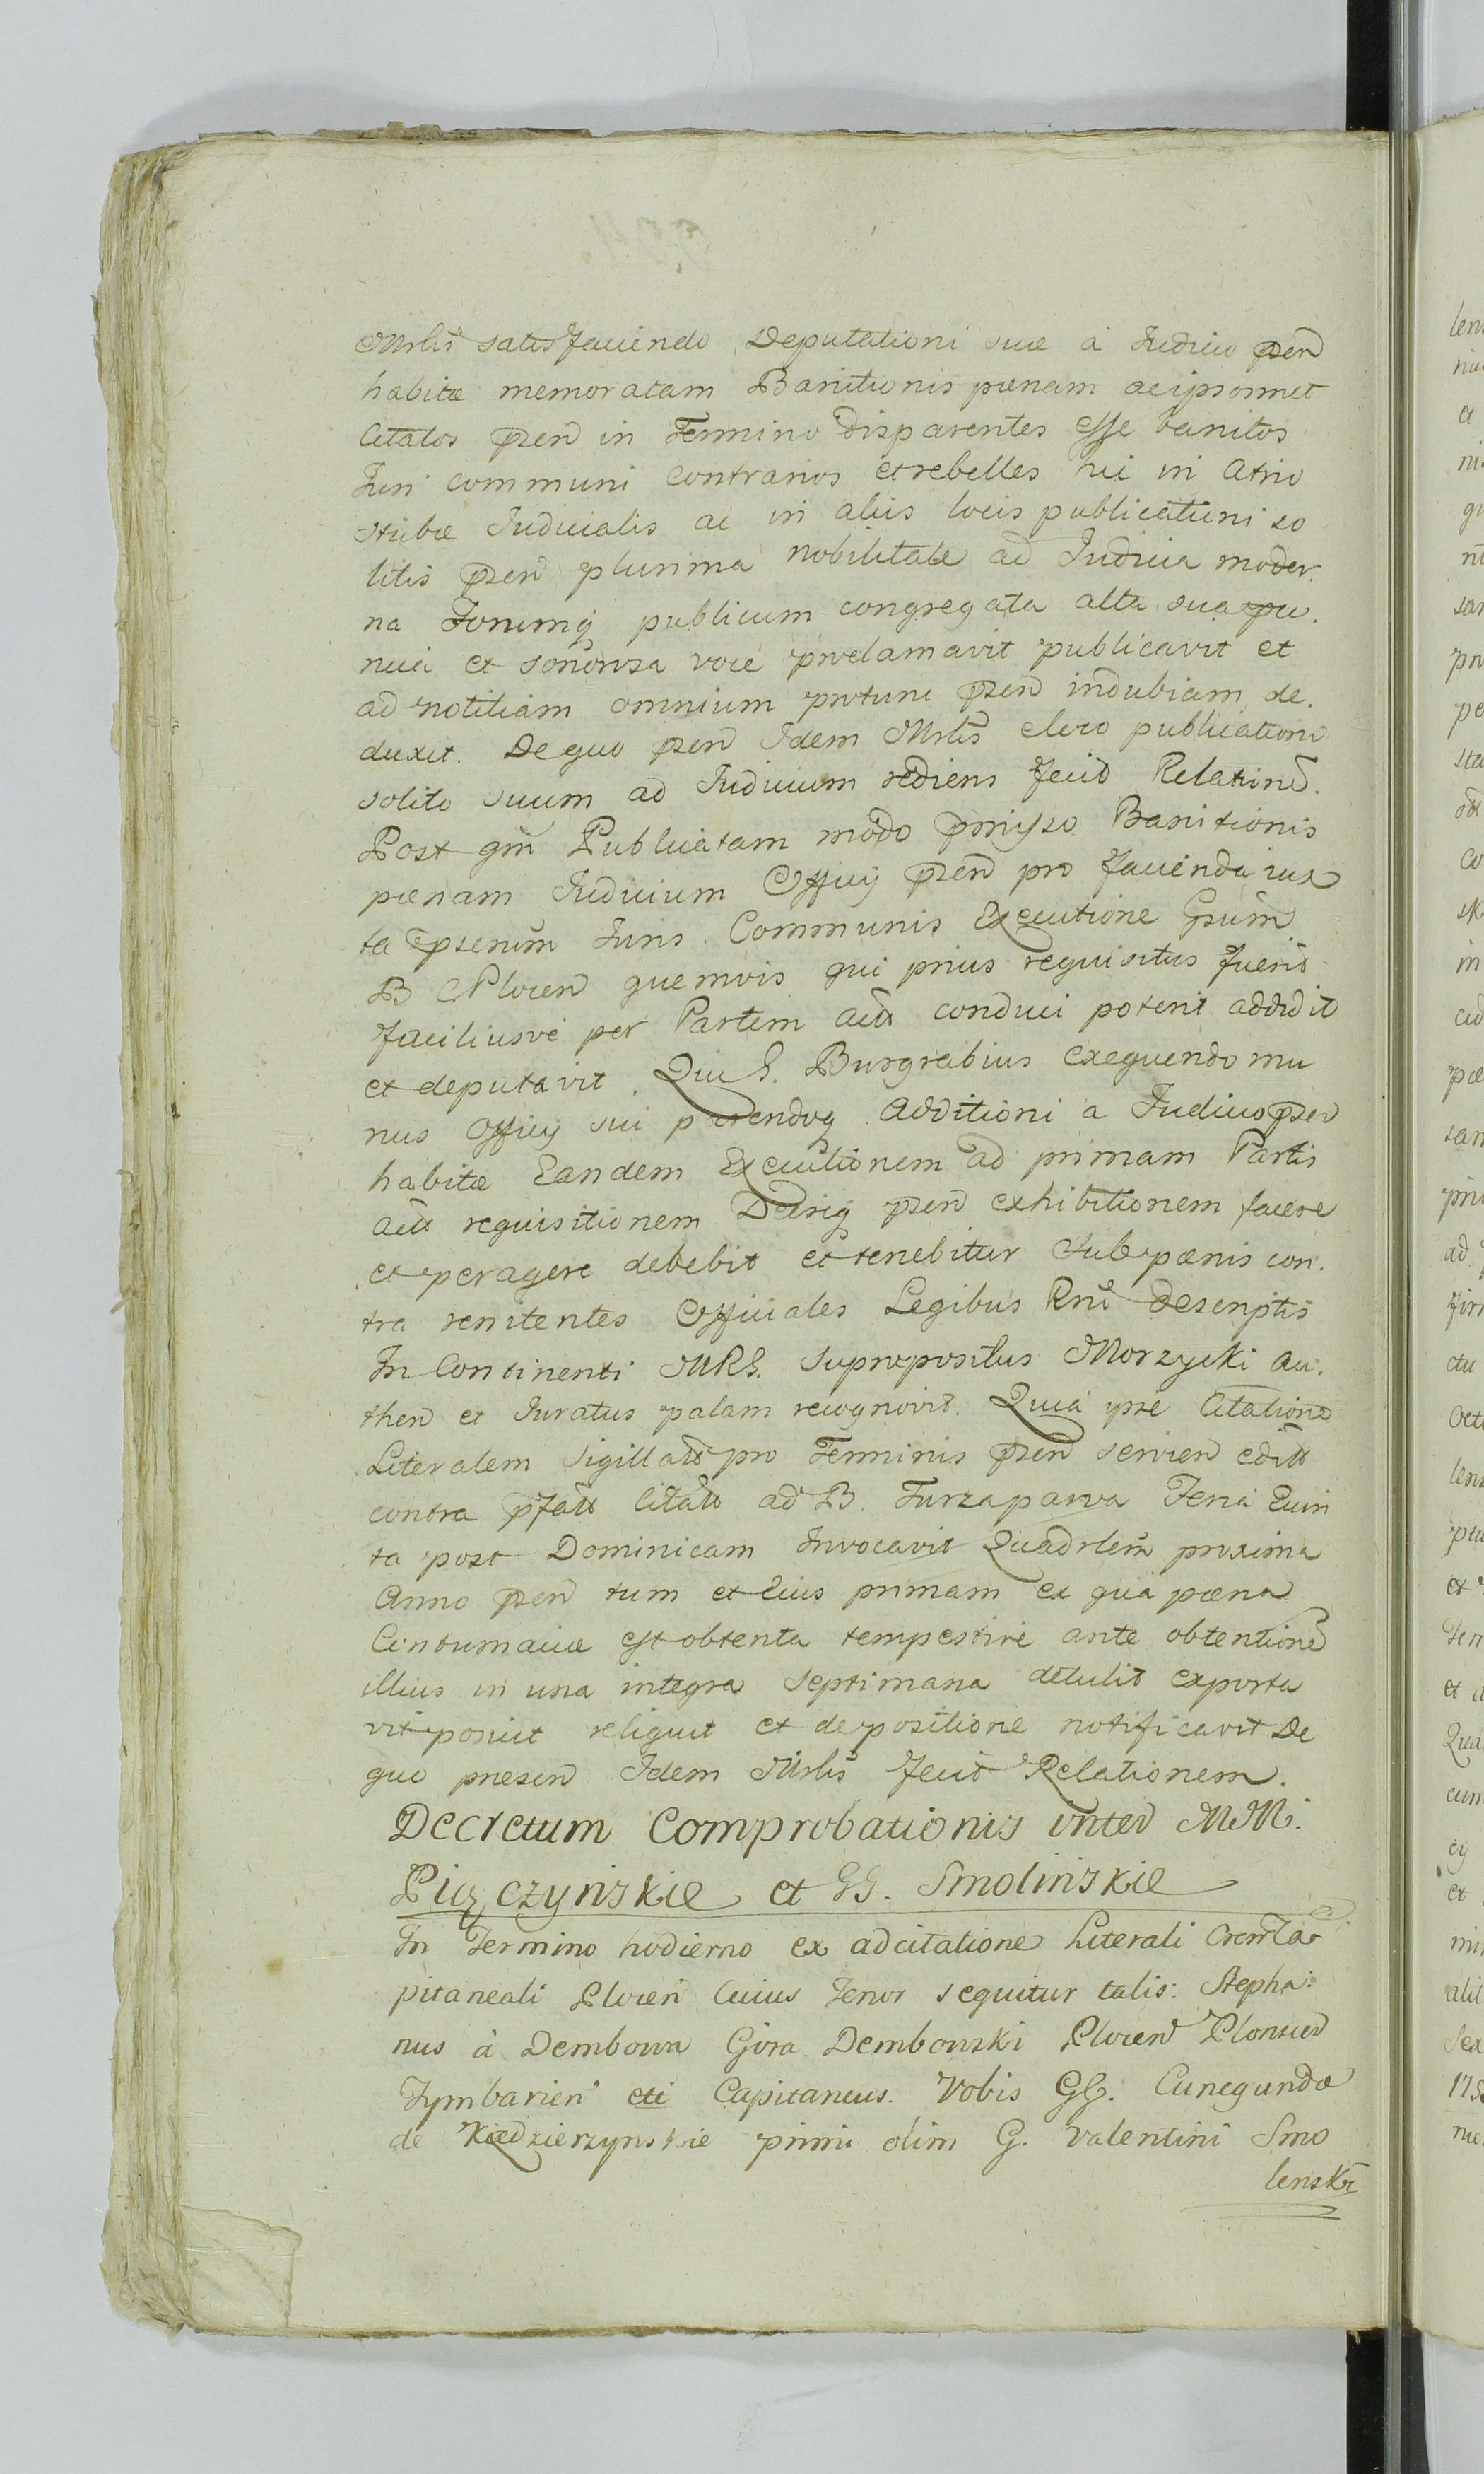 Mrlis satisfaciendo Deputationi suæ à Iudicio pñsen
habitæ memoratam Banitionis pœnam ac ipsosmet
Citatos pñsen in Termino disparentes esse banitos
Iuri communi contrarios et rebelles hic in Atrio
stubæ Iudicialis ac in aliis locis publicationi so
litis pñsen plurima nobilitate ad Iudicia moder.
na Forumq publicum congregata alta sua
et sonorosa voce proclamavit publicavit et
ad notitiam omnium protunc pñsen indubiam de.
duxit. De quo pñsen Idem Mrlis loco publicationi
solito suum ad Iudicium rediens fecit Relationē.
Post qm̄ Publicatam modo pmisso Banitionis
pœnam Iudicium Officij pñsen pro facienda iux
ta Iuris Communis Executione Gsum
B Plocen quemvis qui prius requisitus fuerit
faciliusvè per Partem act̄ conduci poterit addidit
et deputavit. Qui G. Burgrabius exequendo mu
nus Officij sui parendoq Additioni a Iudicio pñsen
habitæ Eandem Executionem ad primam Partis
act̄ requisitionem Dctsiq pñsen exhibitionem facere
et peragere debebit et tenebitur sub pœnis con.
tra renitentes Officiales Legibus Rni descriptis
In Continenti MRG. supropositus Morzycki au.
then et Iuratus palam recognovit. Quia ipse Citationē
Literalem sigillat̄ pro Terminis pñsen servien edit̄
contra pfat̄ Citat̄ ad B. Turzaparva Feria Quin
ta post Dominicam Invocavit Quadrlem̄ proxima
Anno pñsen tum et Eius primam ex qua pœna
Contumaciæ est obtenta tempestivè ante obtentionē
illius in una integra septimana detulit exporta
vit posuit reliquit et de positione notificavit De
quo presen Idem Mrlis fecit Relationem.
Decretum Comprobationis inter MM.
Piączyńskie et GG. Smolińskie
In Termino hodierno ex adcitatione Literali Cremli Ca
pitaneali Plocen Cuius Tenor sequitur talis: Stepha:
nus à Dembowa Gora Dembowski Plocen Plonscen
Tymbarien etc Capitaneus. Vobis GG. Cunegundæ
de Kiedzierzynskie primi olim G. Valentini Smo
lenski